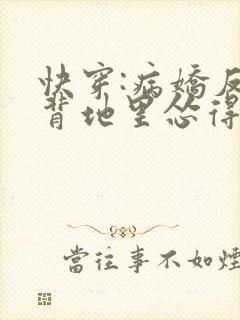 快穿:病嬌反
背地里怂得
當往事不如煙